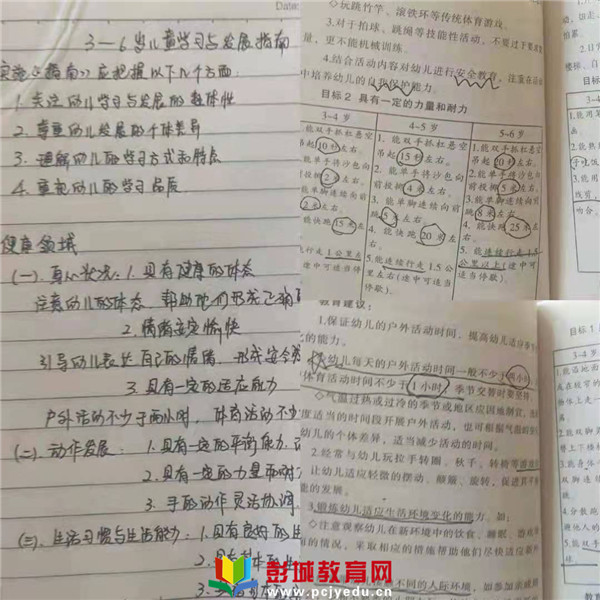 Date:
3—6岁儿童学习与发展指南
实施《指南》应把握以下几个方面:
1. 关注幼儿学习与发展的整体性
2. 尊重幼儿发展的个体差异
3. 理解幼儿的学习方式和特点
4. 重视幼儿的学习品质
健康领域
(一). 身心状况: 1. 具有健康的体态
注意幼儿的体态, 帮助他们形成正确
2. 情绪安定愉快
引导幼儿表达自己的情绪, 形成安全
3. 具有一定的适应能力
户外活动不少于两小时, 体育活动不少
(二). 动作发展: 1. 具有一定的平衡能力,
2. 具有一定的力量和耐力
3. 手的动作灵活协调
(三). 生活习惯与生活能力: 1. 具有良好的生
2. 具有基本的生
◇玩跳竹竿、滚铁环等传统体育游戏。
3.对于拍球、跳绳等技能性活动,不要过于要求数
量,更不能机械训练。
4.结合活动内容对幼儿进行安全教育,注重在活动
中培养幼儿的自我保护能力。
目标 2 具有一定的力量和耐力
3-4岁 4-5岁 5-6岁
1.能双手抓杠悬空
吊起 10 秒左右。
能单手将沙包向
前投掷 2 米左右。
能单脚连续向前
跳 2 米左右。
能快跑 15 米左右。
能行走 1 公里左
(途中可适当停
1. 能双手抓杠悬空
吊起 15 秒左右。
2. 能单手将沙包向
前投掷 4 米左右。
3. 能单脚连续向前
跳 5 米左右。
4. 能快跑 20 米左
右。
5. 能连续行走 1.5 公
里左右(途中可适当
停歇)。
1.能双手抓杠悬空
吊起 20 秒左右。
2.能单手将沙包向
前投掷 5 米左右。
3.能单脚连续向前
跳 8 米左右。
4.能快跑 25 米左
右。
5.能连续行走 1.5
公里以上(途中可
适当停歇)。
教育建议:
1.保证幼儿的户外活动时间,提高幼儿适应季节
化的能力。
幼儿每天的户外活动时间一般不少于两小时,
体育活动时间不少于 1 小时,季节交替时要坚持。
◇气温过热或过冷的季节或地区应因地制宜,选
度适当的时间段开展户外活动,也可根据气温的
幼儿的个体差异,适当减少活动的时间。
2.经常与幼儿玩拉手转圈、秋千、转椅等
让幼儿适应轻微的摆动、颠簸、旋转,促进其平
能的发展。
3.锻炼幼儿适应生活环境变化的能力。如:
◇注意观察幼儿在新环境中的饮食、睡眠、游戏
的情况,采取相应的措施帮助他们尽快适应新
不同的人际环境,如参加亲戚朋
3-4岁
彭城教育网
www.pcjyedu.cn